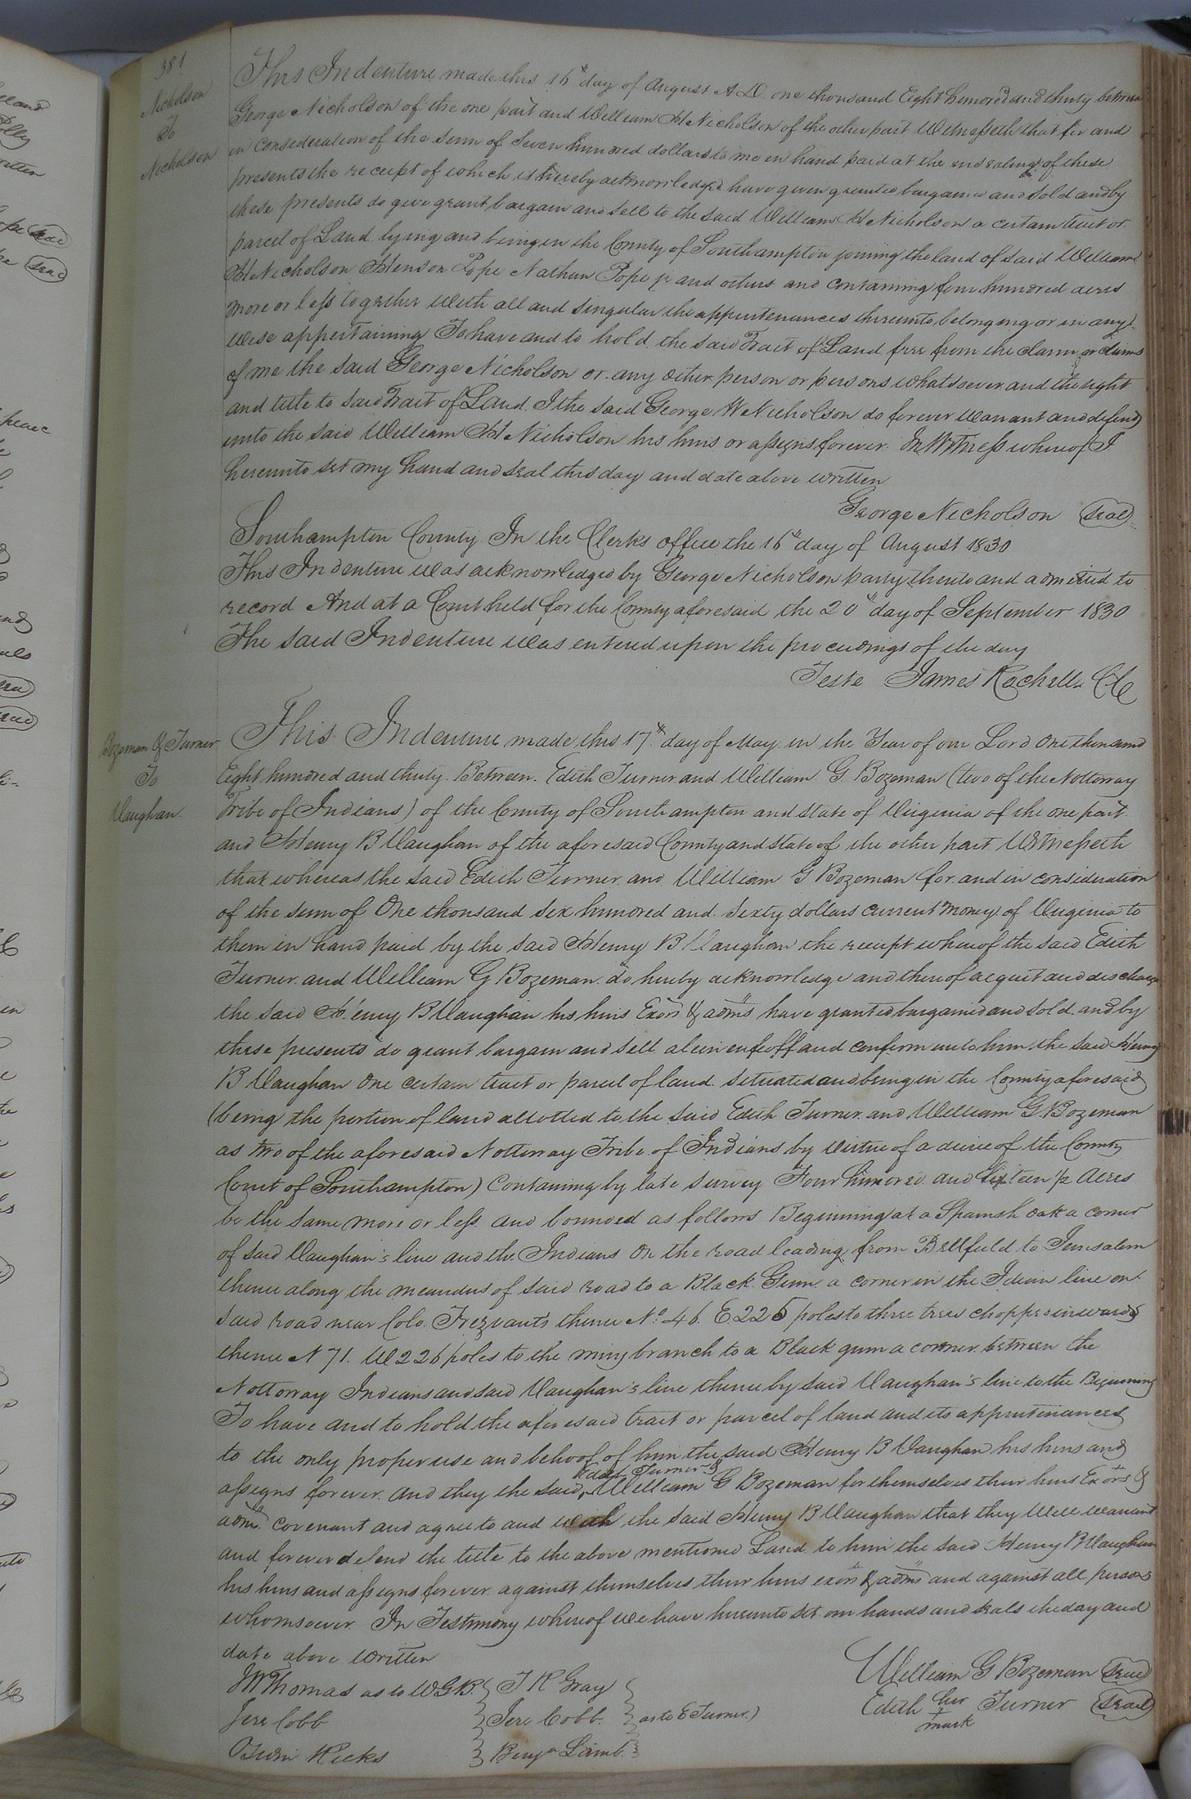 381
Nicholson
To
Nicholson
This Indenture made this 16th day of August A.D. one thousand Eight hundred and thirty between
George Nicholson of the one part and William H Nicholson of the other part Witnesseth that for and
in consideration of the sum of Seven hundred dollars to me in hand paid at the ensealing of these
presents the receipt of which is hereby acknowledged have given granted bargained and sold and by
these presents do give grant bargain and sell to the said William H Nicholson a certain tract or
parcel of Land lying and being in the County of Southampton joining the land of said William
H Nicholson Henson Pope Nathan Pope jr and others and containing four hundred acres
more or less together with all and singular the appurtenances thereunto belonging or in any
wise appertaining To have and to hold the said Tract of Land free from the claim or claims
of me the said George Nicholson or any other person or persons whatsoever and the right
and title to said Tract of Land I the said George W Nicholson do forever warrant and defend
unto the said William H Nicholson his heirs or assigns forever In Witness whereof I
hereunto set my hand and seal this day and date above written
George Nicholson Seal
Southampton County In the Clerks office the 16th day of August 1830
This Indenture was acknowledged by George Nicholson party thereto and admitted to
record And at a Court held for the County aforesaid the 20th day of September 1830
The said Indenture was entered upon the proceedings of the day
Teste James Rochelle CC
Bozeman & Turner
To
Vaughan
This Indenture made this 17th day of May in the Year of our Lord One thousand
Eight hundred and thirty Between Edith Turner and William G Bozeman (two of the Nottoway
Tribe of Indians) of the County of Southampton and state of Virginia of the one part
and Henry B Vaughan of the aforesaid County and State of the other part Witnesseth
that whereas the said Edith Turner and William G Bozeman for and in consideration
of the sum of One thousand six hundred and sixty dollars current money of Virginia to
them in hand paid by the said Henry B Vaughan the receipt whereof the said Edith
Turner and William G Bozeman do hereby acknowledge and thereof acquit and discharge
the said Henry B Vaughan his heirs Exors & adms have granted bargained and sold and by
these presents do grant bargain and sell alien enfeoff and confirm unto him the said Henry
B Vaughan One certain tract or parcel of land situated and being in the County aforesaid
(being the portion of land allotted to the said Edith Turner and William G Bozeman
as two of the aforesaid Nottoway Tribe of Indians by virtue of a decree of the County
Court of Southampton) Containing by late survey Four hundred and sixteen 1/2 Acres
be the same more or less and bounded as follows Beginning at a Spanish oak a corner
of said Vaughan's line and the Indians On the road leading from Bellfield to Jerusalem
thence along the meanders of said road to a Black Gum a corner in the Idean line on
said road near Colo. Trezvants thence No 46 E 225 poles to three trees chopped inwards
thence N 71 W 226 poles to the miry branch to a Black gum a corner between the
Nottoway Indians and said Vaughan's line thence by said Vaughan's line to the Beginning
To have and to hold the aforesaid tract or parcel of land and its appurtenances
to the only proper use and behoof of him the said Henry B Vaughan his heirs and
assigns forever And they the said Edith Turner & William G Bozeman for themselves their heirs Exors &
adms covenant and agree to and with the said Henry B Vaughan that they will warrant
and forever defend the title to the above mentioned Land to him the said Henry B Vaughan
his heirs and assigns forever against themselves their heirs exors & adms and against all persons
whomsoever In Testimony whereof we have hereunto set our hands and seals the day and
date above written
William G Bozeman Seal
Edith her + mark Turner Seal
JM Thomas as to W.G.B. T R Gray
Jere Cobb Jere Cobb as to E Turner
Ricks Benja Lamb